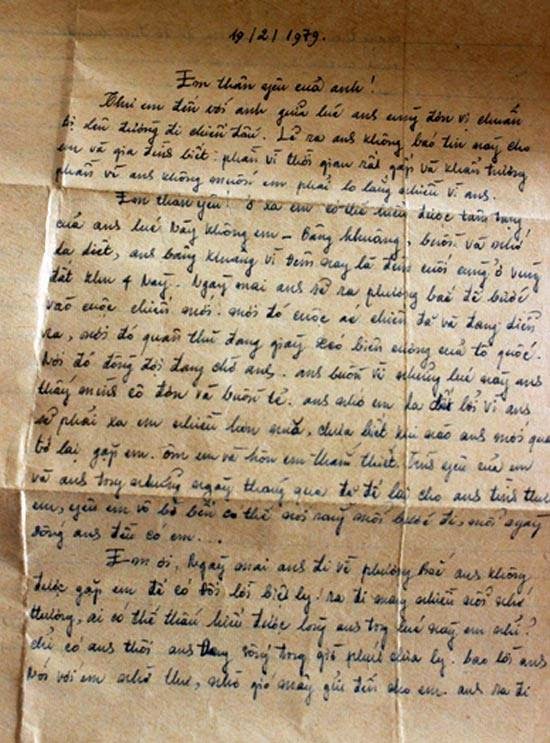 19/2/1979.
Em thân yêu của anh!
Thư em đến với anh giữa lúc ans cùng đơn vị chuẩn
bị lên đường đi chiến đấu. Lẽ ra ans không báo tin này cho
em và gia đình biết: phần vì thời gian rất gấp và khẩn trương
phần vì ans không muốn em phải lo lắng nhiều vì ans.
Em thân yêu! ở xa em có thể hiểu được tâm trạng
của ans lúc này không em - Bâng khuâng, buồn và nhớ
da diết, ans bâng khuâng vì đêm nay là đêm cuối cùng ở vùng
đất khu 4 này. Ngày mai ans sẽ ra phương bắc để bước
vào cuộc chiến mới. nơi đó cuộc chiến đã và đang diễn
ra, nơi đó quân thù đang giày xéo biên cương của tổ quốc.
Nơi đó đồng đội đang chờ ans. ans buồn vì những lúc này ans
thấy mình cô đơn và buồn tẻ. ans nhớ em da diết bởi vì ans
sẽ phải xa em nhiều hơn nữa, chưa biết khi nào ans mới quay
trở lại gặp em. ôm em và hôn em thắm thiết. Tình yêu của em
và ans trong những ngày tháng qua đã để lại cho ans tình thương
em, yêu em vô bờ bến có thể nói rằng mỗi bước đi, mỗi ngày
sống ans đều có em...
Em ơi, Ngày mai ans đi về phương Bắc ans không
được gặp em để có đôi lời biệt ly. ra đi mang nhiều nỗi nhớ
thương, ai có thể thấu hiểu được lòng ans trong lúc này em nhỉ?
chỉ có ans thôi ans đang sống trong giờ phút chia ly. bao lời ans
nói với em nhờ thư, nhờ gió mây gửi đến cho em. ans ra đi